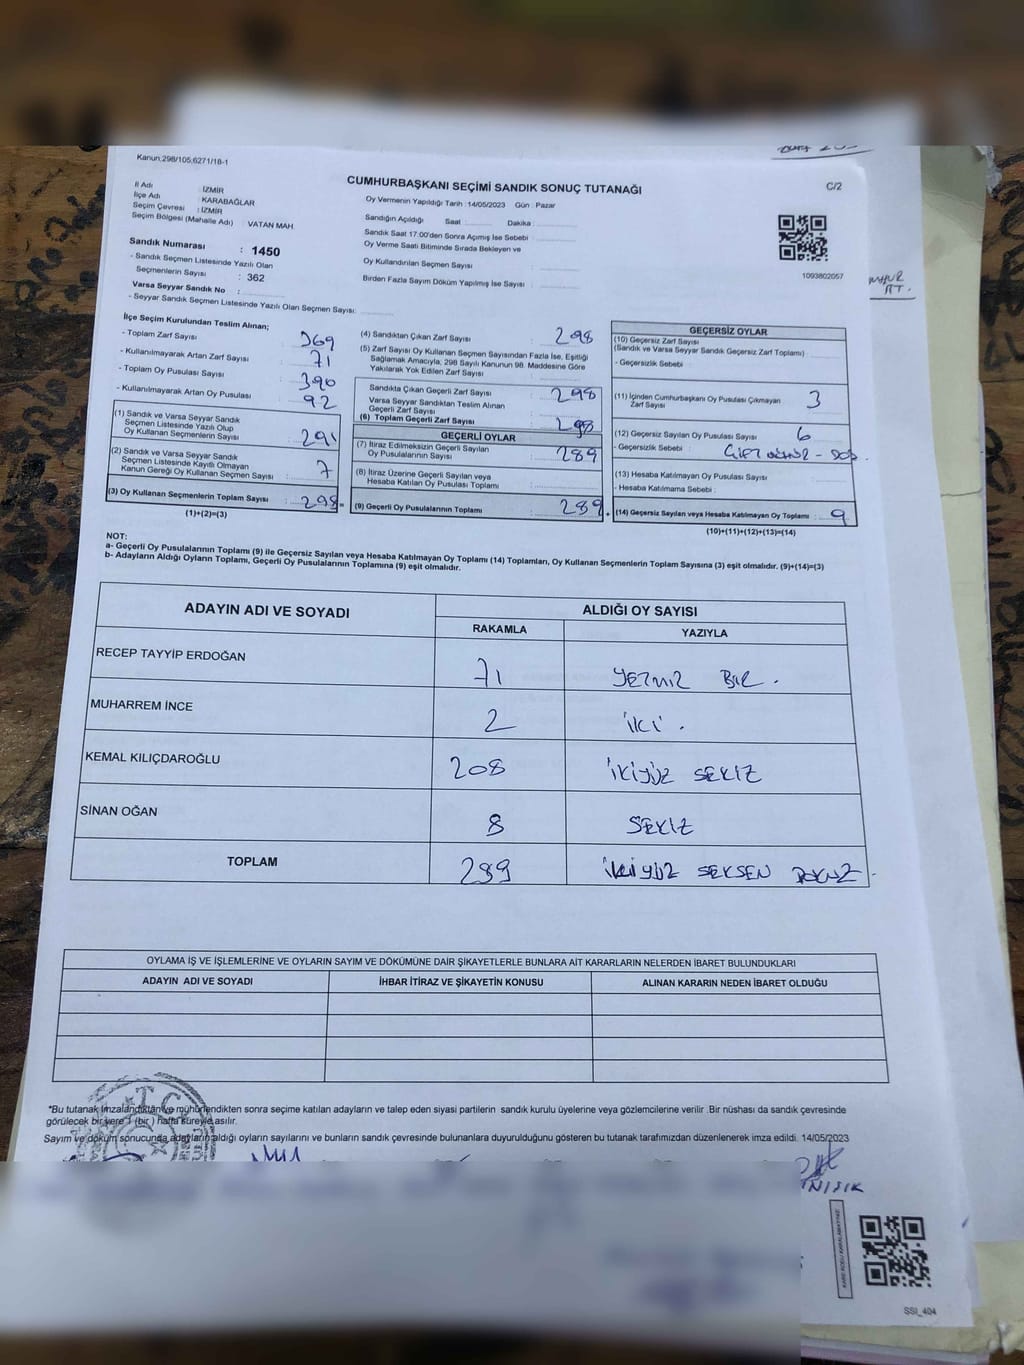 Kanun.298/105;6271/18-1
CUMHURBAŞKANI SEÇİMİ SANDIK SONUÇ TUTANAĞI
C/2
İl Adı : İZMİR
İlçe Adı : KARABAĞLAR
Seçim Çevresi : İZMİR
Seçim Bölgesi (Mahalle Adı) : VATAN MAH.
Sandık Numarası : 1450
- Sandık Seçmen Listesinde Yazılı Olan
Seçmenlerin Sayısı : 362
Varsa Seyyar Sandık No :
- Seyyar Sandık Seçmen Listesinde Yazılı Olan Seçmen Sayısı:
Oy Vermenin Yapıldığı Tarih : 14/05/2023 Gün : Pazar
Sandığın Açıldığı Saat : Dakika :
Sandık Saat 17:00'den Sonra Açımış İse Sebebi :
Oy Verme Saati Bitiminde Sırada Bekleyen ve
Oy Kullandırılan Seçmen Sayısı :
Birden Fazla Sayım Döküm Yapılmış İse Sayısı :
1093802057
İlçe Seçim Kurulundan Teslim Alınan;
- Toplam Zarf Sayısı : 369
- Kullanılmayarak Artan Zarf Sayısı : 71
- Toplam Oy Pusulası Sayısı : 390
- Kullanılmayarak Artan Oy Pusulası : 92
(1) Sandık ve Varsa Seyyar Sandık
Seçmen Listesinde Yazılı Olup
Oy Kullanan Seçmenlerin Sayısı : 291
(2) Sandık ve Varsa Seyyar Sandık
Seçmen Listesinde Kayıtlı Olmayan
Kanun Gereği Oy Kullanan Seçmen Sayısı : 7
(3) Oy Kullanan Seçmenlerin Toplam Sayısı : 298
(1)+(2)=(3)
(4) Sandıktan Çıkan Zarf Sayısı : 298
(5) Zarf Sayısı Oy Kullanan Seçmen Sayısından Fazla İse, Eşitliği
Sağlamak Amacıyla; 298 Sayılı Kanunun 98. Maddesine Göre
Yakılarak Yok Edilen Zarf Sayısı :
Sandıkta Çıkan Geçerli Zarf Sayısı : 298
Varsa Seyyar Sandıktan Teslim Alınan
Geçerli Zarf Sayısı
(6) Toplam Geçerli Zarf Sayısı : 298
GEÇERLİ OYLAR
(7) İtiraz Edilmeksizin Geçerli Sayılan
Oy Pusulasının Sayısı : 289
(8) İtiraz Üzerine Geçerli Sayılan veya
Hesaba Katılan Oy Pusulası Toplamı :
(9) Geçerli Oy Pusulalarının Toplamı : 289
GEÇERSİZ OYLAR
(10) Geçersiz Zarf Sayısı
(Sandık ve Varsa Seyyar Sandık Geçersiz Zarf Toplamı) :
- Geçersizlik Sebebi :
(11) İçinden Cumhurbaşkanı Oy Pusulası Çıkmayan
Zarf Sayısı : 3
(12) Geçersiz Sayılan Oy Pusulası Sayısı : 6
- Geçersizlik Sebebi :
(13) Hesaba Katılmayan Oy Pusulası Sayısı :
- Hesaba Katılmama Sebebi :
(14) Geçersiz Sayılan veya Hesaba Katılmayan Oy Toplamı : 9
(10)+(11)+(12)+(13)=(14)
NOT:
a- Geçerli Oy Pusulalarının Toplamı (9) ile Geçersiz Sayılan veya Hesaba Katılmayan Oy Toplamı (14) Toplamları, Oy Kullanan Seçmenlerin Toplam Sayısına (3) eşit olmalıdır. (9)+(14)=(3)
b- Adayların Aldığı Oyların Toplamı, Geçerli Oy Pusulalarının Toplamına (9) eşit olmalıdır.
ADAYIN ADI VE SOYADI ALDIĞI OY SAYISI
RAKAMLA YAZIYLA
RECEP TAYYİP ERDOĞAN 71 YETMİŞ BİR.
MUHARREM İNCE 2 İKİ.
KEMAL KILIÇDAROĞLU 208 İKİYÜZ SEKİZ
SİNAN OĞAN 8 SEKİZ
TOPLAM 289 İKİYÜZ SEKSEN DOKUZ
OYLAMA İŞ VE İŞLEMLERİNE VE OYLARIN SAYIM VE DÖKÜMÜNE DAİR ŞİKAYETLERLE BUNLARA AİT KARARLARIN NELERDEN İBARET BULUNDUKLARI
ADAYIN ADI VE SOYADI İHBAR İTİRAZ VE ŞİKAYETİN KONUSU ALINAN KARARIN NEDEN İBARET OLDUĞU
*Bu tutanak imzalandıktan ve mühürlendikten sonra seçime katılan adayların ve talep eden siyasi partilerin sandık kurulu üyelerine veya gözlemcilerine verilir .Bir nüshası da sandık çevresinde
görülecek bir yere 1 (bir ) hafta süreyle asılır.
Sayım ve döküm sonucunda adayların aldığı oyların sayılarını ve bunların sandık çevresinde bulunanlara duyurulduğunu gösteren bu tutanak tarafımızdan düzenlenerek imza edildi. 14/05/2023
SSI_404